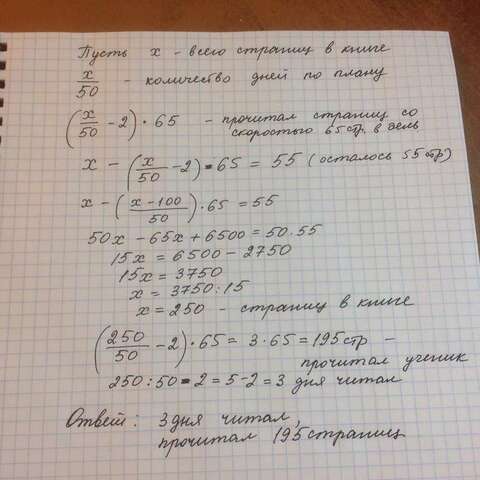 Пусть x - всего страниц в книге
x/50 - количество дней по плану
(x/50 - 2) · 65 - прочитал страниц со
скоростью 65 стр. в день
x - (x/50 - 2) · 65 = 55 (осталось 55 стр)
x - (x - 100/50) · 65 = 55
50x - 65x + 6500 = 50 · 55
15x = 6500 - 2750
15x = 3750
x = 3750 : 15
x = 250 - страниц в книге
(250/50 - 2) · 65 = 3 · 65 = 195 стр -
прочитал ученик
250 : 50 - 2 = 5 - 2 = 3 дня читал
Ответ: 3 дня читал,
прочитал 195 страниц